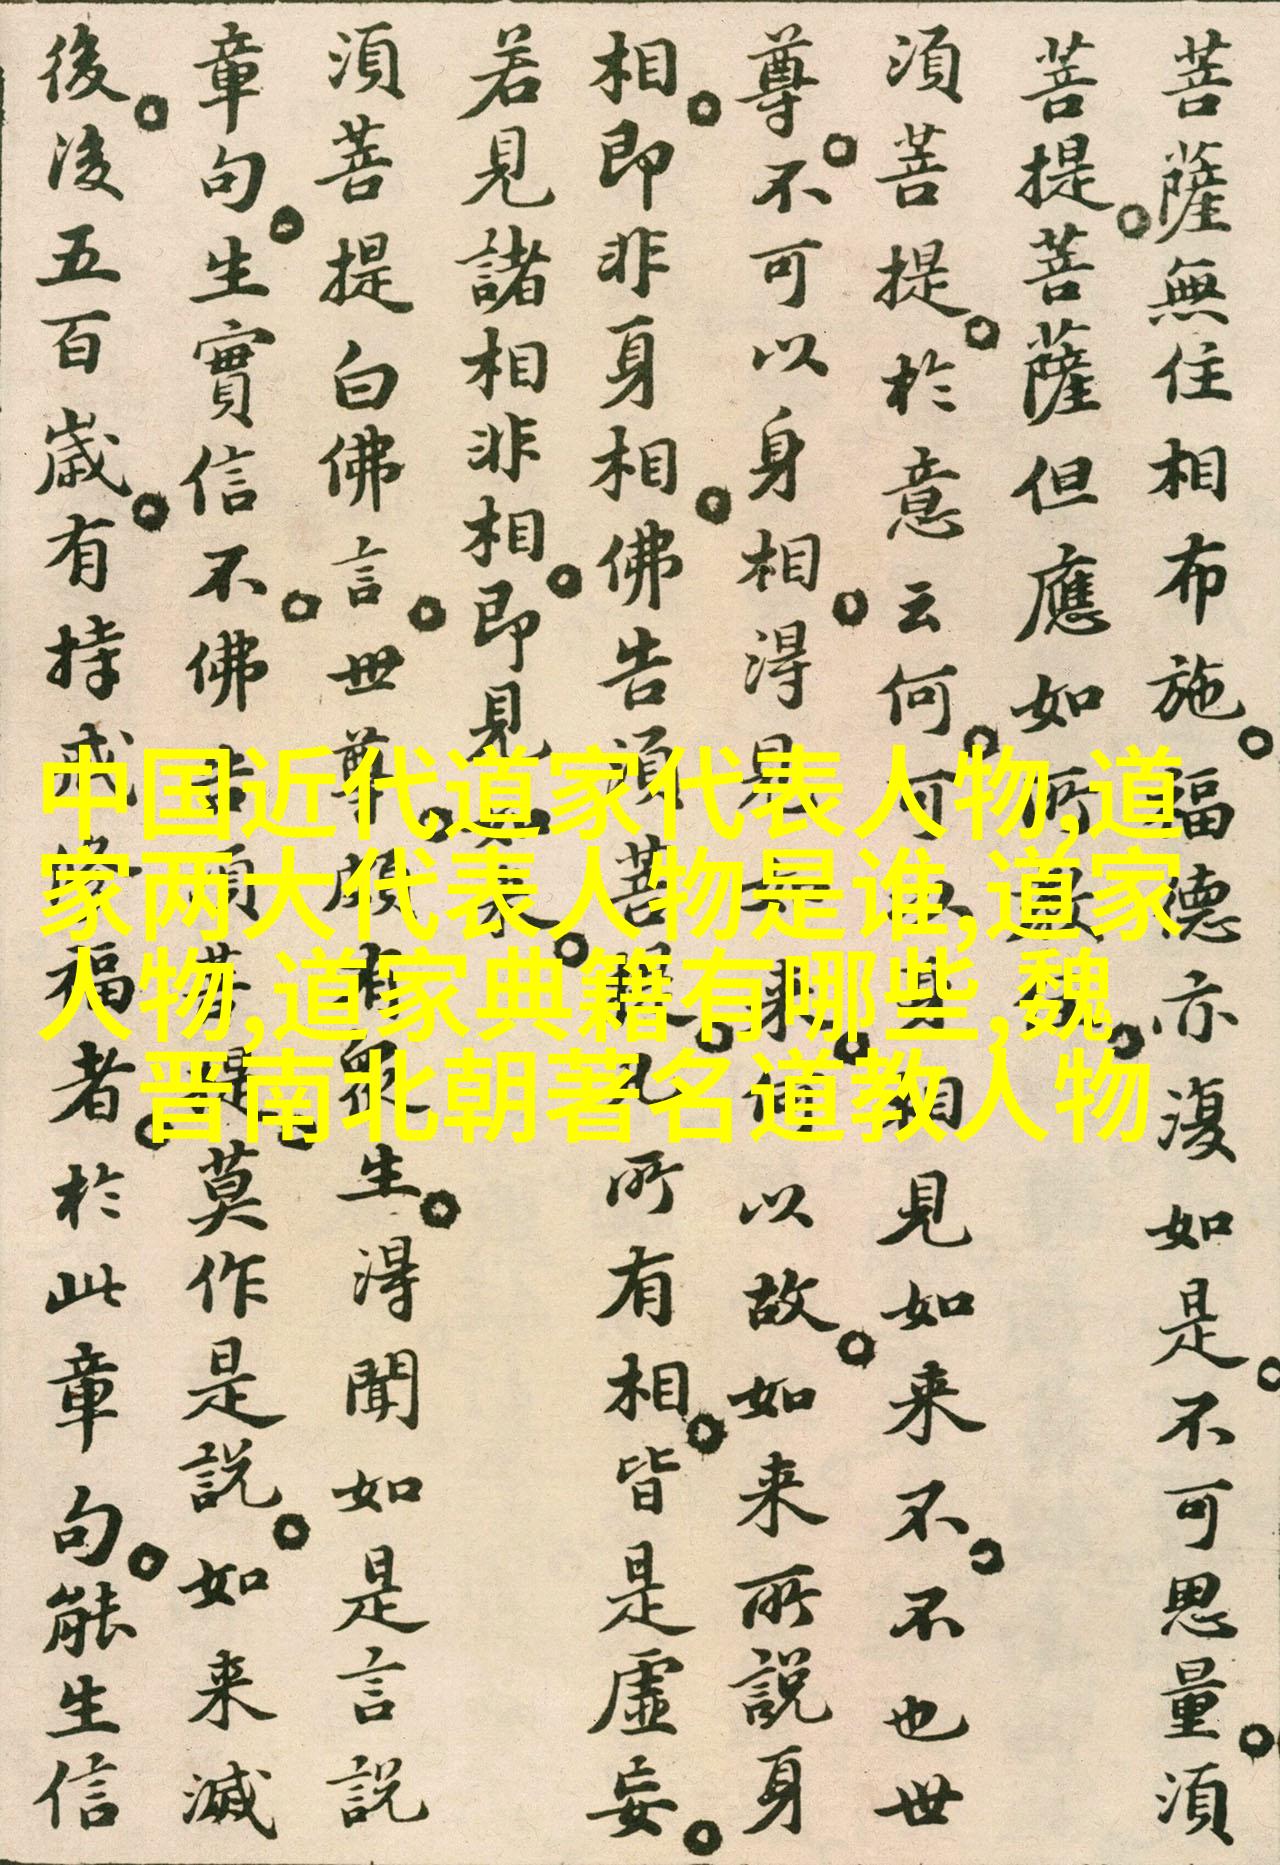 菩薩無住相布施。福德亦復如是。不可思量。須
菩提。菩薩但應如所教住。
須菩提。於意云何。可以身相見如来不。不也世
尊。不可以身相。得見如来。何以故。如来所說身
相。即非身相。佛告須菩提。凡所有相。皆是虛妄。
若見諸相非相。即見如来。
須菩提白佛言。世尊。頗有眾生。得聞如是言說
章句。生實信不。佛告須菩提。莫作是說。如来滅
後。後五百歲。有持戒修福者。於此章句。能生信
中国近代道家代表人物,道
家两大代表人物是谁,道家
人物,道家典籍有哪些,魏
晋南北朝著名道教人物